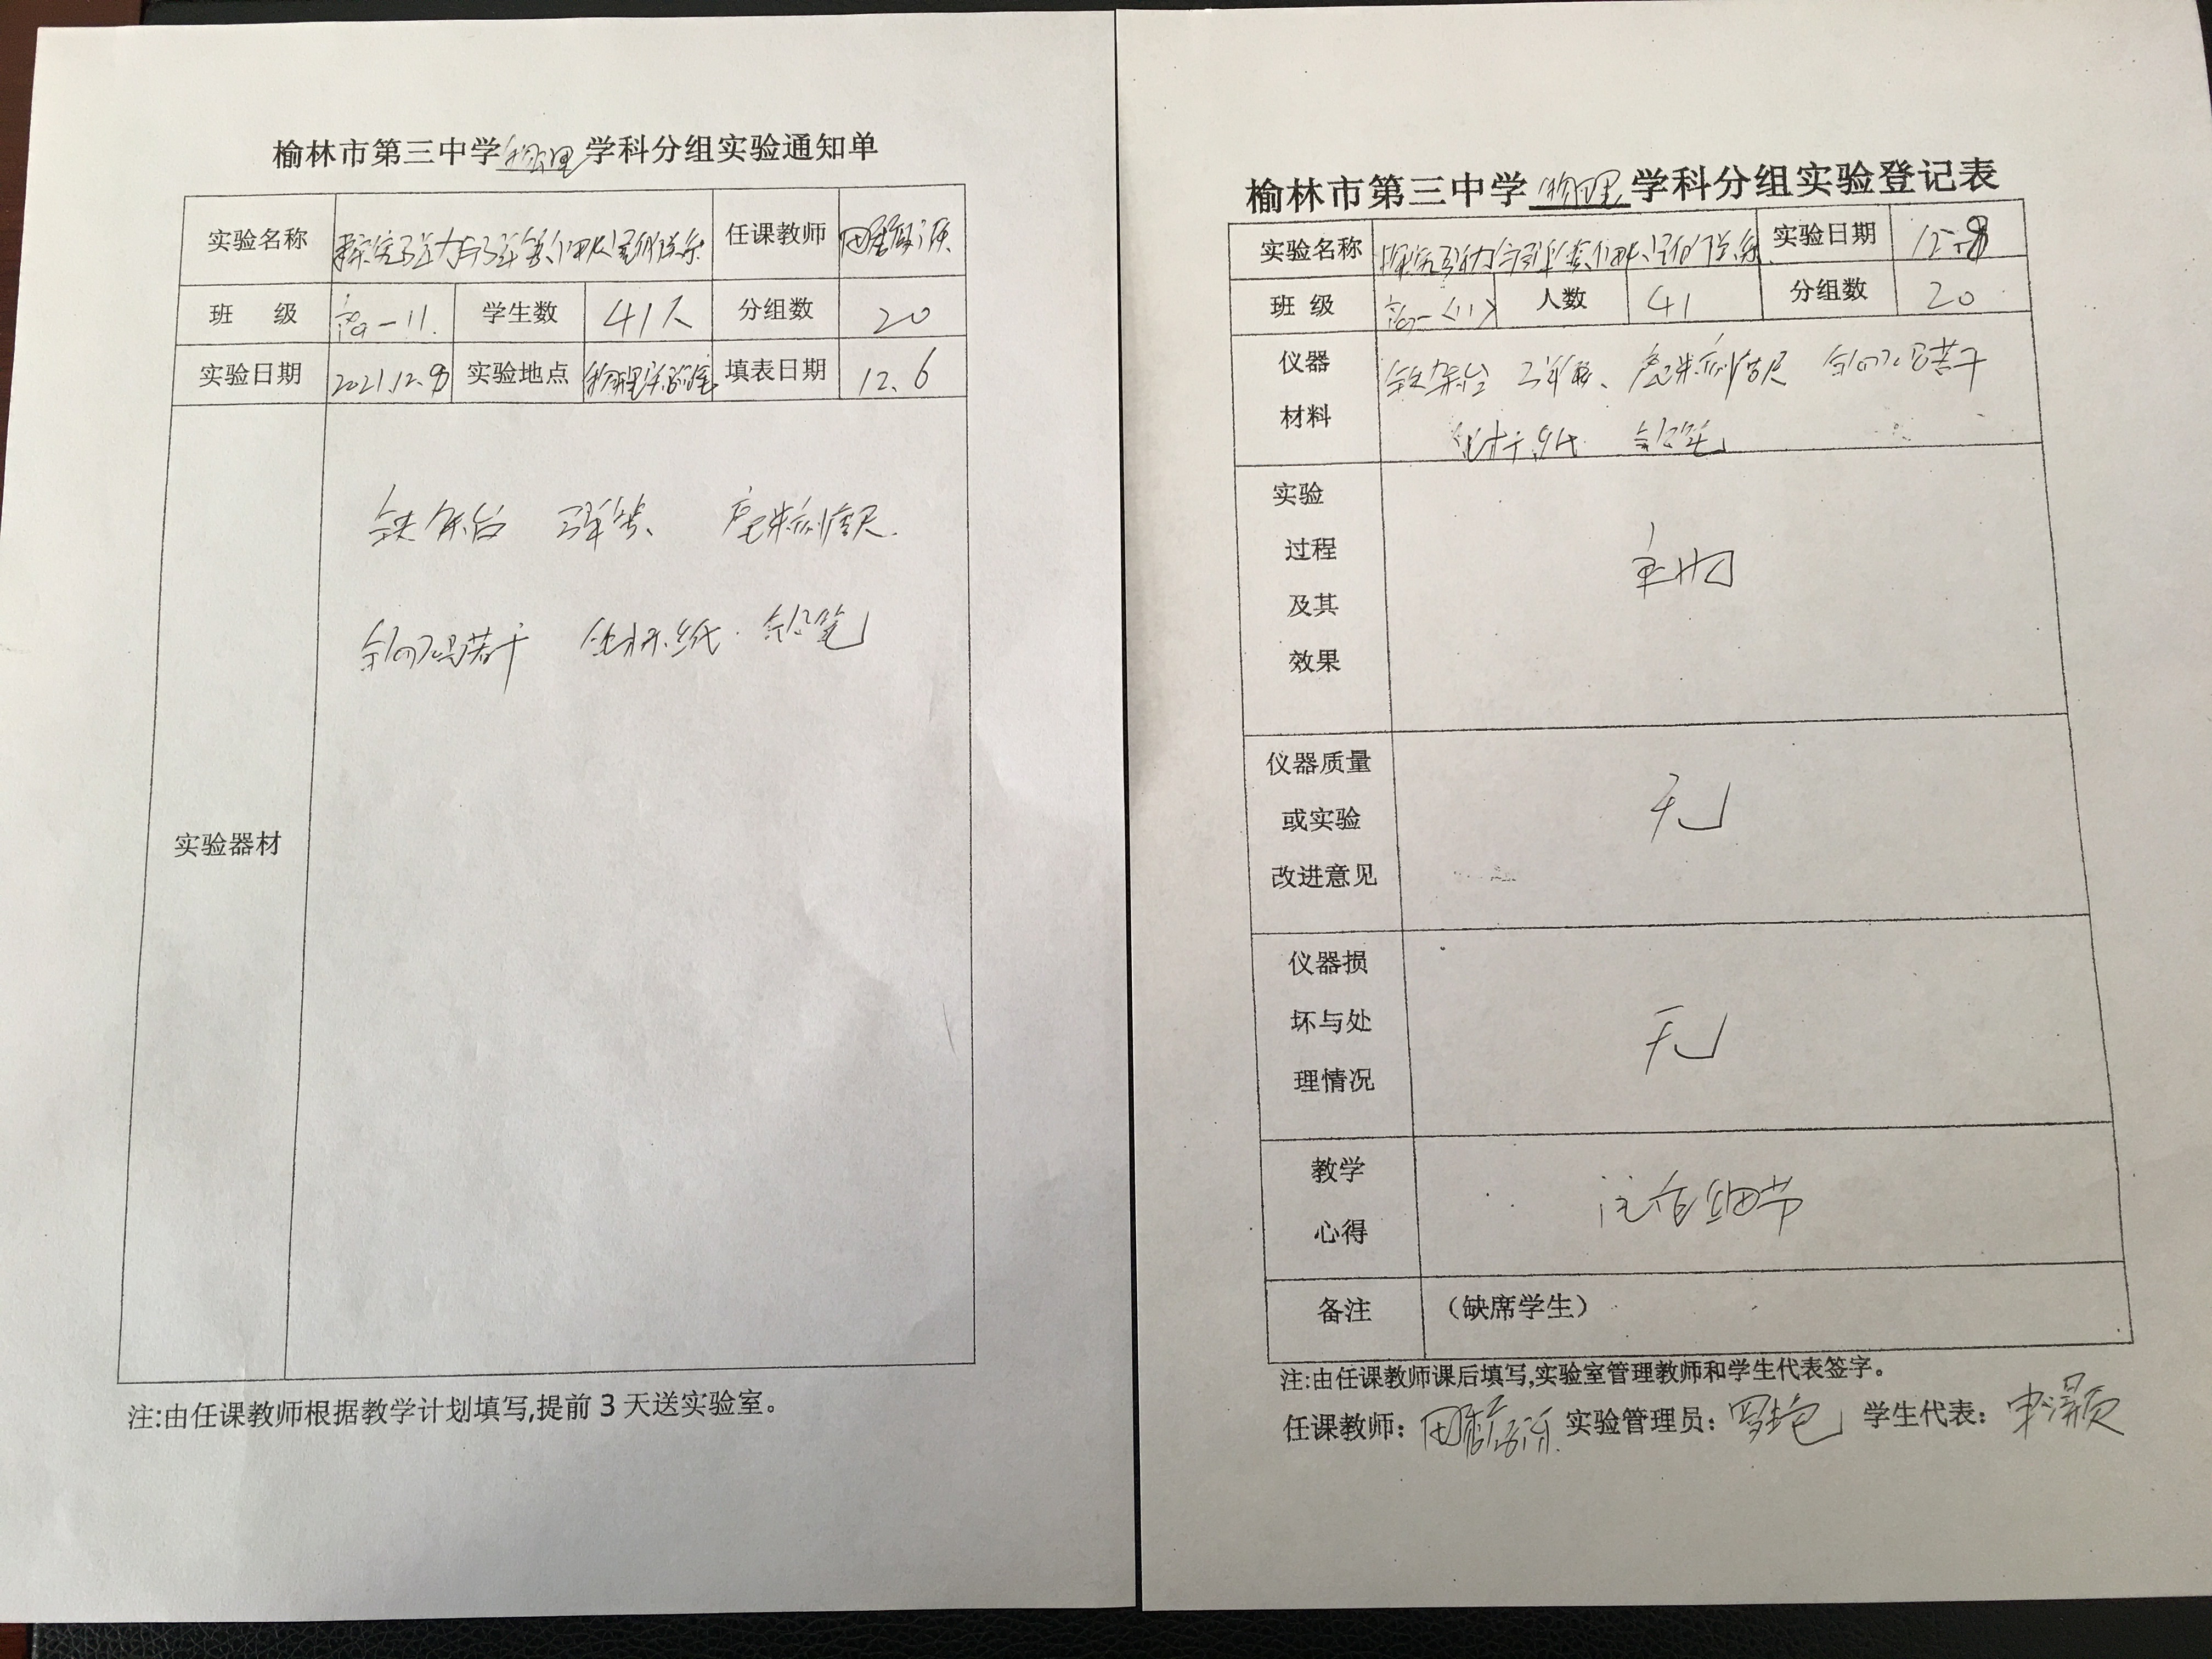 榆林市第三中学物理学科分组实验通知单
实验名称 探究弹力与弹簧伸长量的关系 任课教师
班 级 高一11. 学生数 41人 分组数 20
实验日期 2021.12.8 实验地点 物理实验室 填表日期 12.6
实验器材
铁架台 弹簧、 毫米刻度尺.
钩码若干 坐标纸. 铅笔
注:由任课教师根据教学计划填写,提前3天送实验室。
榆林市第三中学物理学科分组实验登记表
实验名称 探究弹力与弹簧伸长量的关系 实验日期 12.8
班 级 高一<11> 人数 41 分组数 20
仪器 铁架台 弹簧、毫米刻度尺 钩码若干
材料 坐标纸 铅笔
实验
过程
及其
效果
仪器质量
或实验 无
改进意见
仪器损
坏与处 无
理情况
教学 注意细节
心得
备注 （缺席学生）
注:由任课教师课后填写,实验室管理教师和学生代表签字。
任课教师: 实验管理员: 学生代表: